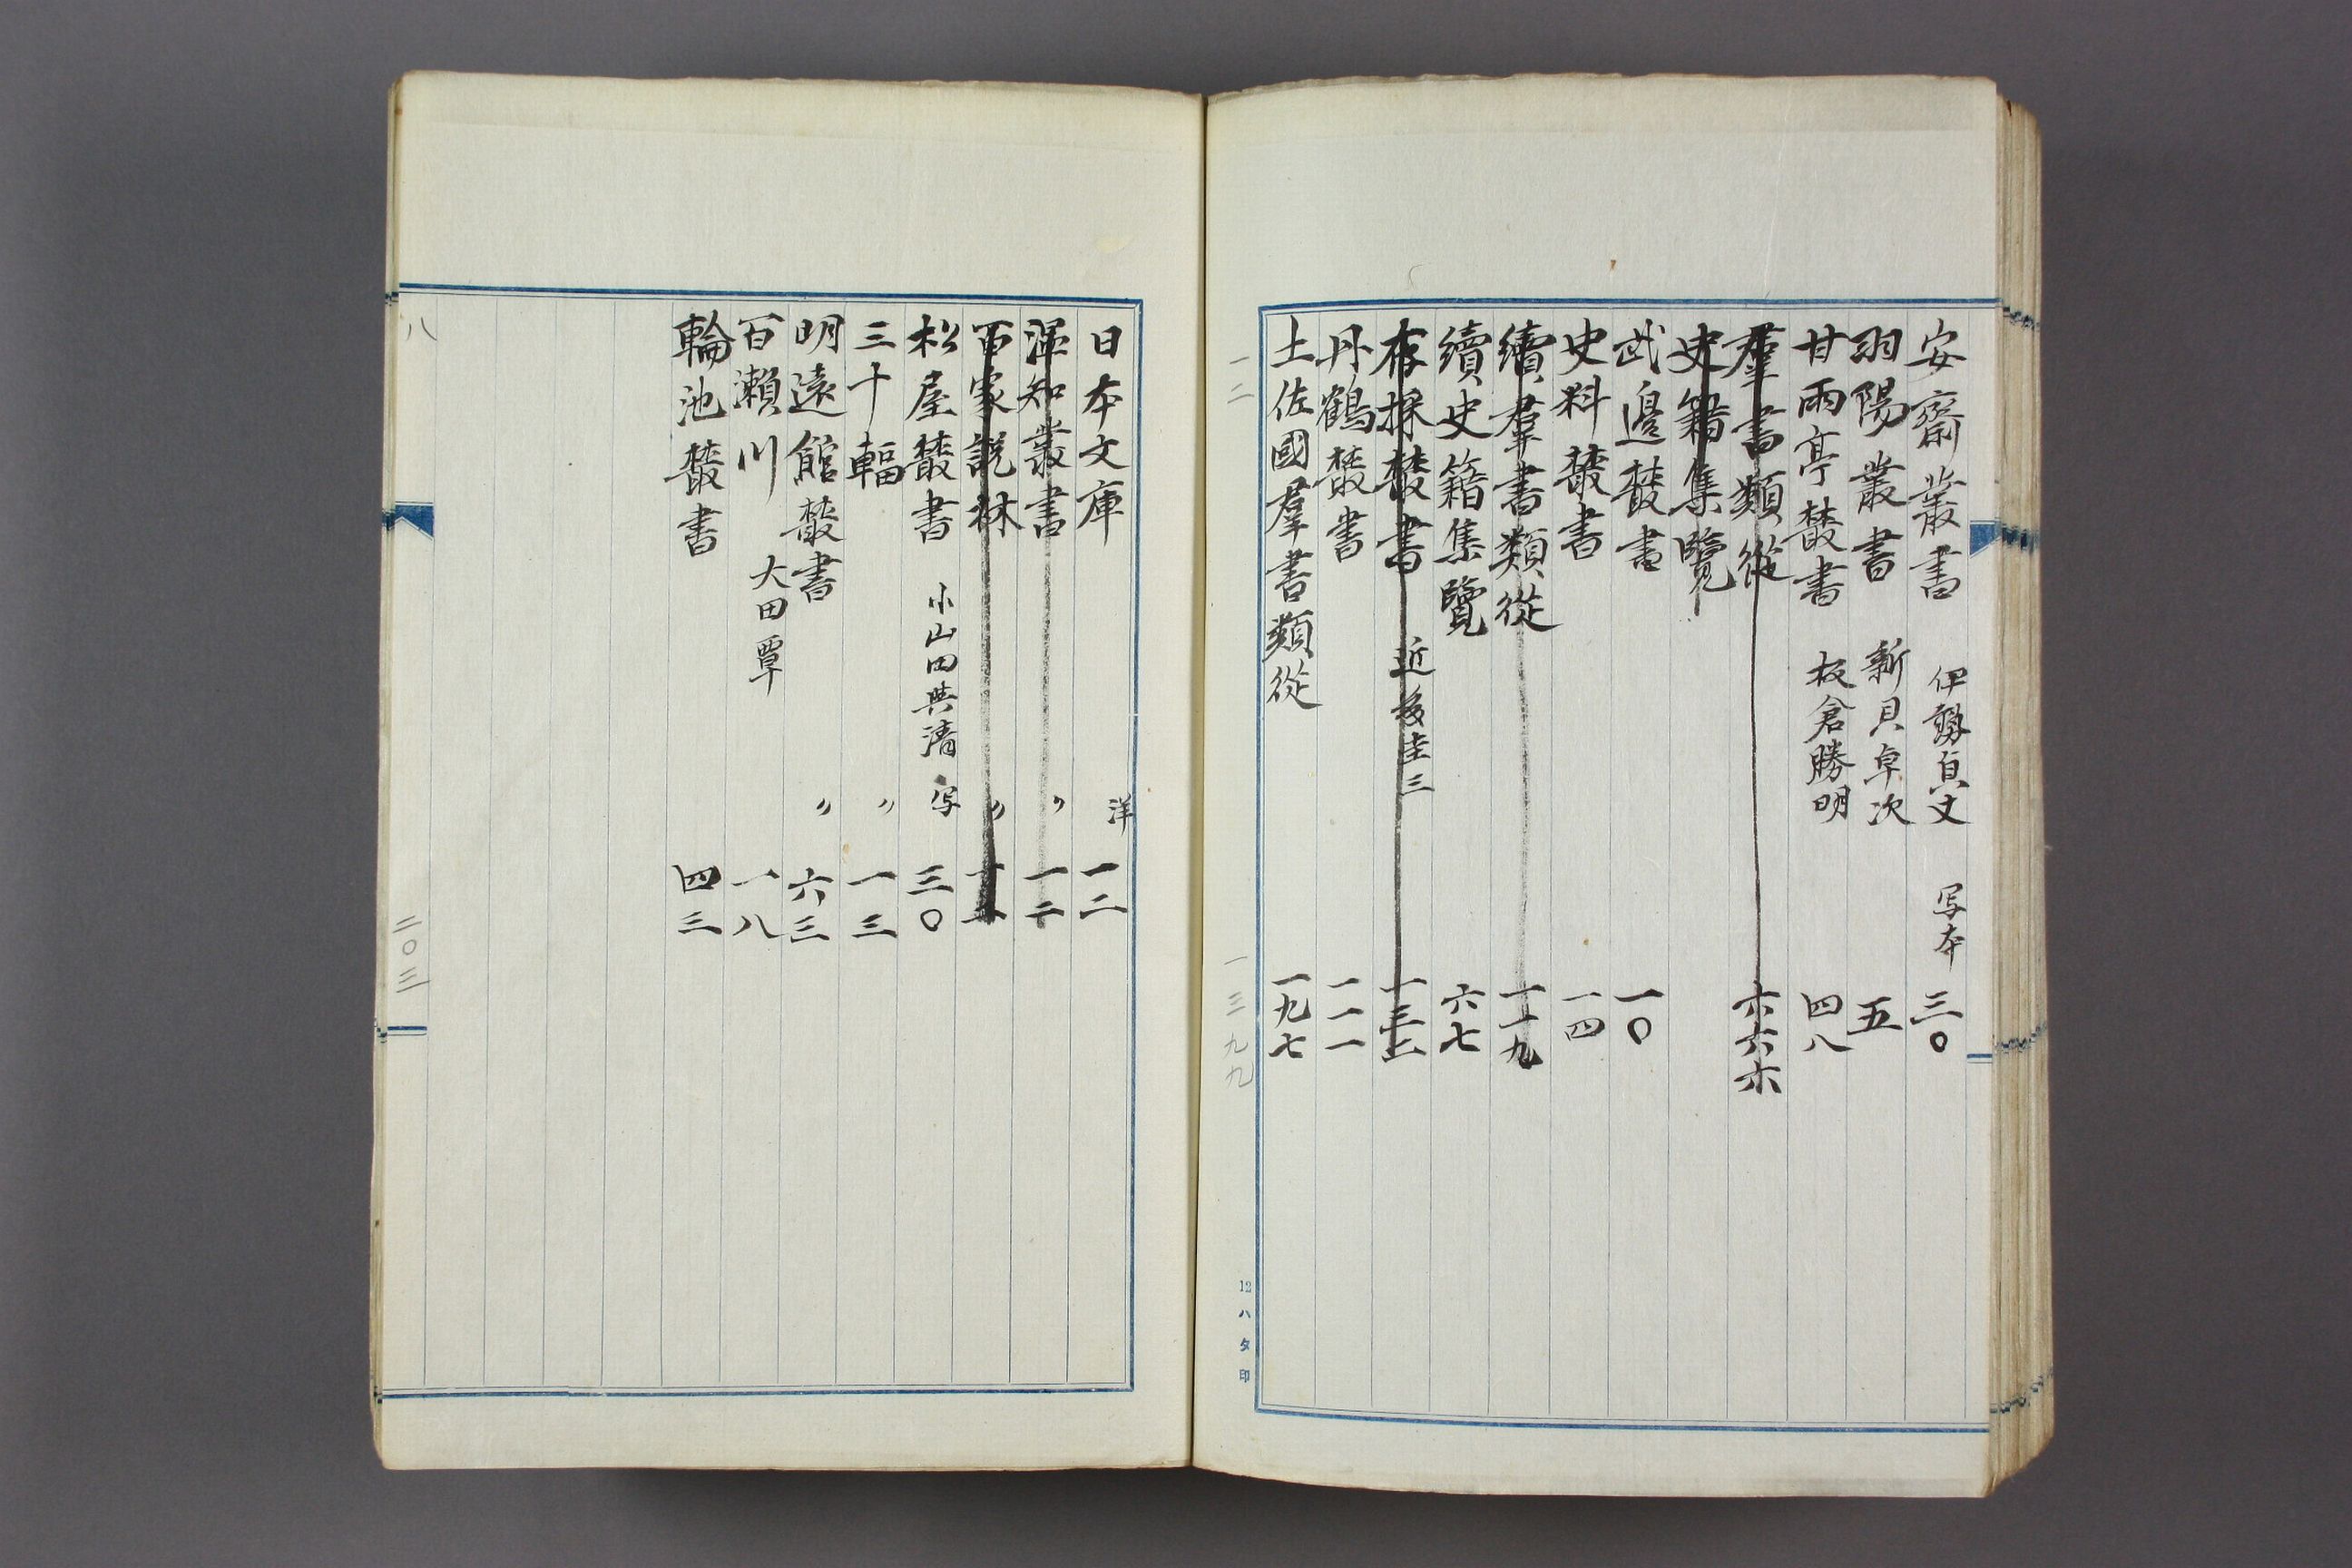 安齋叢書 伊勢貞丈 写本 三〇
羽陽叢書 新貝卓次 五
甘雨亭叢書 板倉勝明 四八
羣書類從 六六六
史籍集覽
武邊叢書 一〇
史料叢書 一四
續羣書類從 一一九
續史籍集覽 六七
存採叢書 近藤圭三 一三二
丹鶴叢書 一一一
土佐國羣書類從 一九七
一二 一三九九
12 ハタ印
日本文庫 洋 一二
渾知叢書 〃 一二
百家説林 〃
松屋叢書 小山田與清 写 三〇
三十輻 〃 一三
明遠館叢書 〃 六三
百瀬川 大田覃 一八
輪池叢書 四三
八 二〇三